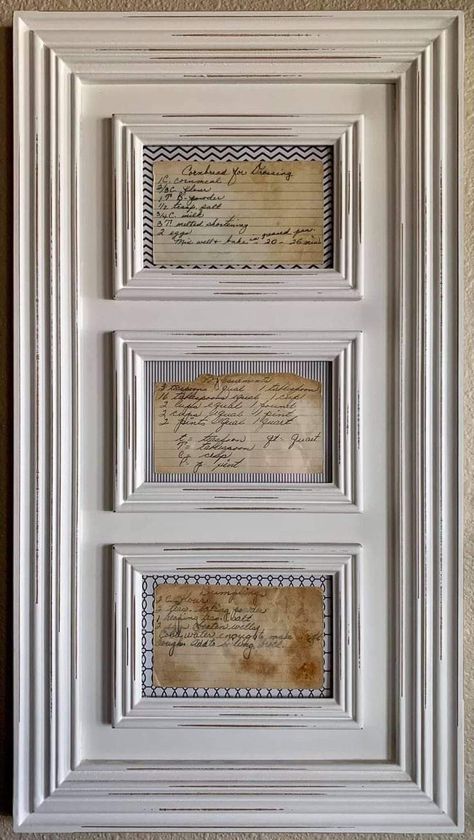 Cornbread for Dressing
1 C. cornmeal
2/3 C. flour
1 T B-powder
1/2 teasp. salt
3/4 C. milk
3 T. melted shortening
2 eggs
Mix well + bake in greased pan 20-25 min
Measurements
3 teaspoons equal 1 tablespoon
16 tablespoons equal 1 cup
2 cups equal 1 pound
2 cups equal 1 pint
2 pints equal 1 Quart
teaspoon qt - Quart
T = tablespoon
C = cup
p - pint
Dumplings
2 C. flour
2 baking powder
1 heaping tea. salt
2 beaten
Cold water enough to make soft
dough. Add to boiling